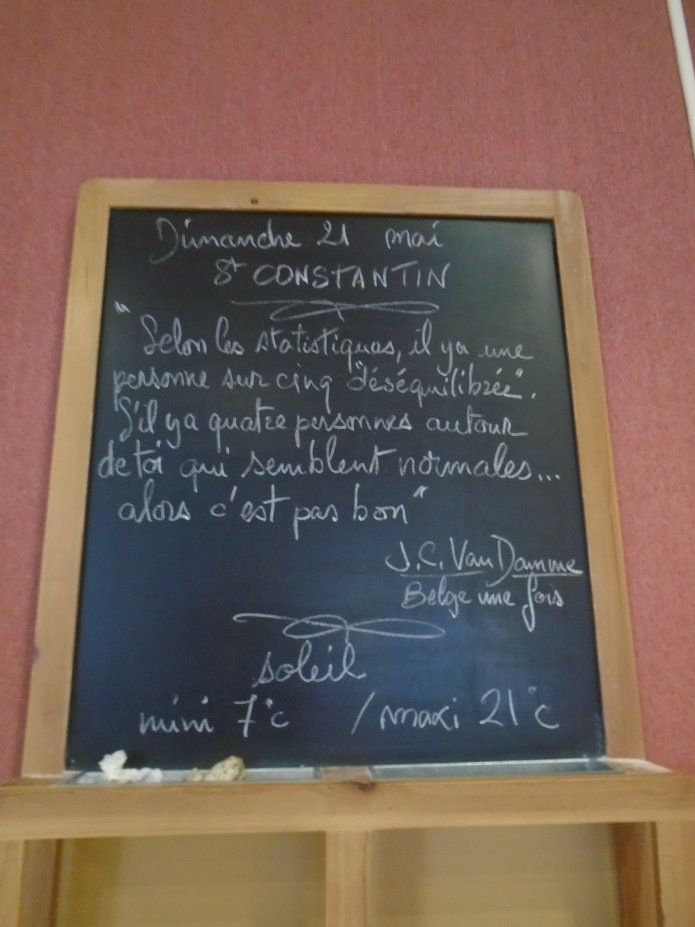 Dimanche 21 mai
St CONSTANTIN
"Selon les statistiques, il y a une
personne sur cinq "déséquilibrée".
S'il y a quatre personnes autour
de toi qui semblent normales...
alors c'est pas bon"
J.C. Van Damme
Belge une fois
soleil
mini 7°c / maxi 21°c